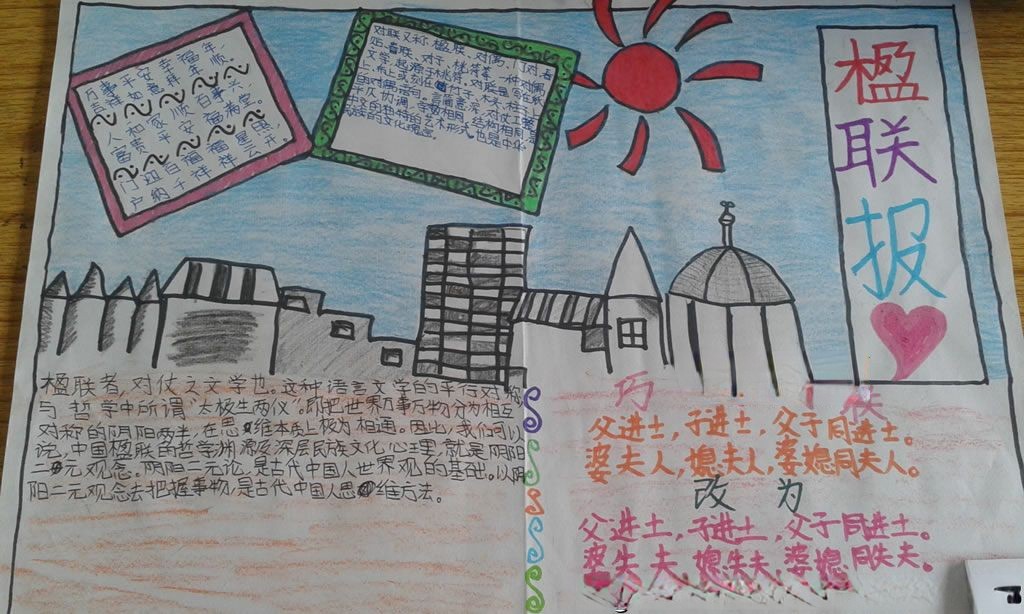 楹联报
万事平安幸福年，
吉祥如意祥年顺。
人和家顺百事兴，
富贵平安福满堂。
门迎百福福星照，
户纳千祥祥云开
对联又称楹联、对偶、门对、春
贴、春联、对子、桃符等，一种对偶
文学，起源于桃符。对联是写在纸、
布上或刻在竹子、木头、柱子上
的对偶语句。言简意深，对仗工整，
平仄协调，字数相同，结构相同，是
民族的文化瑰宝。
楹联者，对仗之文学也。这种语言文学的平行对称，
与哲学中所谓“太极生两仪”。即把世界万事万物分为相互
对称的阴阳两半，在思维本质上极为相通。因此，我们可以
说，中国楹联的哲学渊源及深层民族文化心理，就是阴阳
二元观念。阴阳二元论，是古代中国人世界观的基础。以阴
阳二元观念去把握事物，是古代中国人思维方法。
巧
父进士，子进士，父子同进士。
婆夫人，媳夫人，婆媳同夫人。
改为
父进土，子进土，父子同进土。
婆失夫，媳失夫，婆媳同失夫。